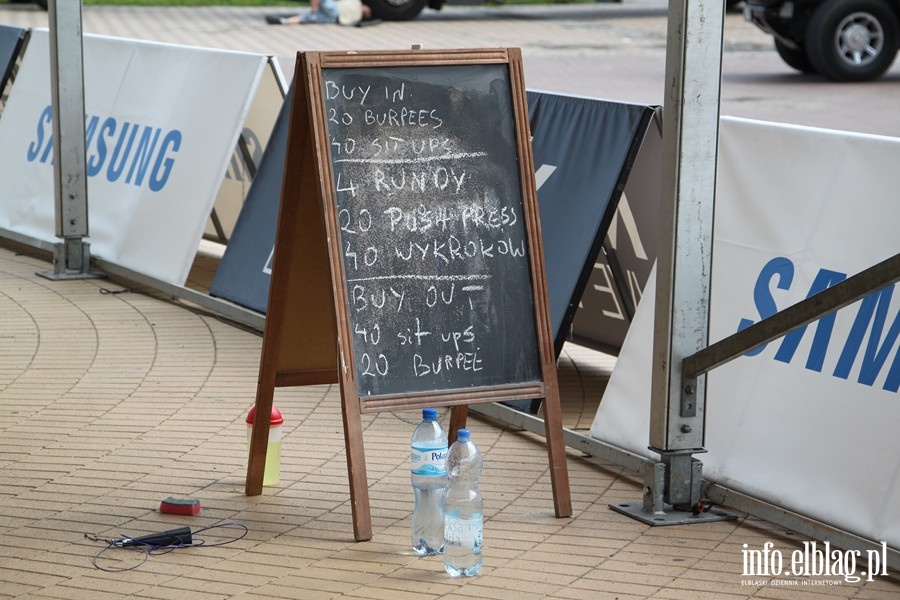 BUY IN
20 BURPEES
40 SIT UPS
4 RUNDY
20 PUSH PRESS
40 WYKROKÓW
BUY OUT
40 SIT UPS
20 BURPEE
SAMSUNG
SAM
info.elbląg.pl
ELBLĄSKI DZIENNIK INTERNETOWY